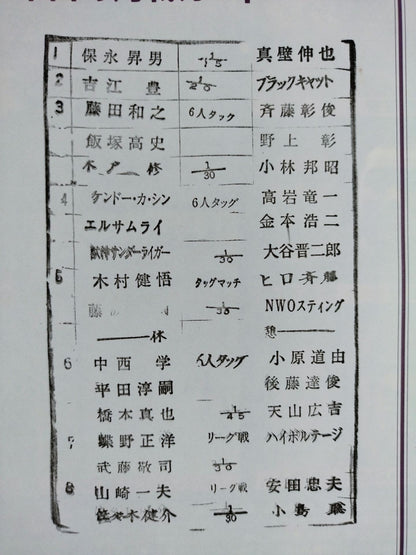 1 保永昇男 1/15 真壁伸也
2 吉江豊 1/20 ブラックキャット
3 藤田和之 6人タック 斉藤彰俊
飯塚高史 野上彰
木戸修 1/30 小林邦昭
4 ケンドー・カ・シン 6人タッグ 高岩竜一
エルサムライ 金本浩二
獣神サンダーライガー 1/30 大谷晋二郎
5 木村健悟 タッグマッチ ヒロ斉藤
藤 1/30 NWOスティング
――休 憩――
6 中西学 6人タッグ 小原道由
平田淳嗣 後藤達俊
橋本真也 1/45 天山広吉
7 蝶野正洋 リーグ戦 ハイボルテージ
武藤敬司 1/30
8 山崎一夫 リーグ戦 安田忠夫
佐々木健介 1/30 小島聡